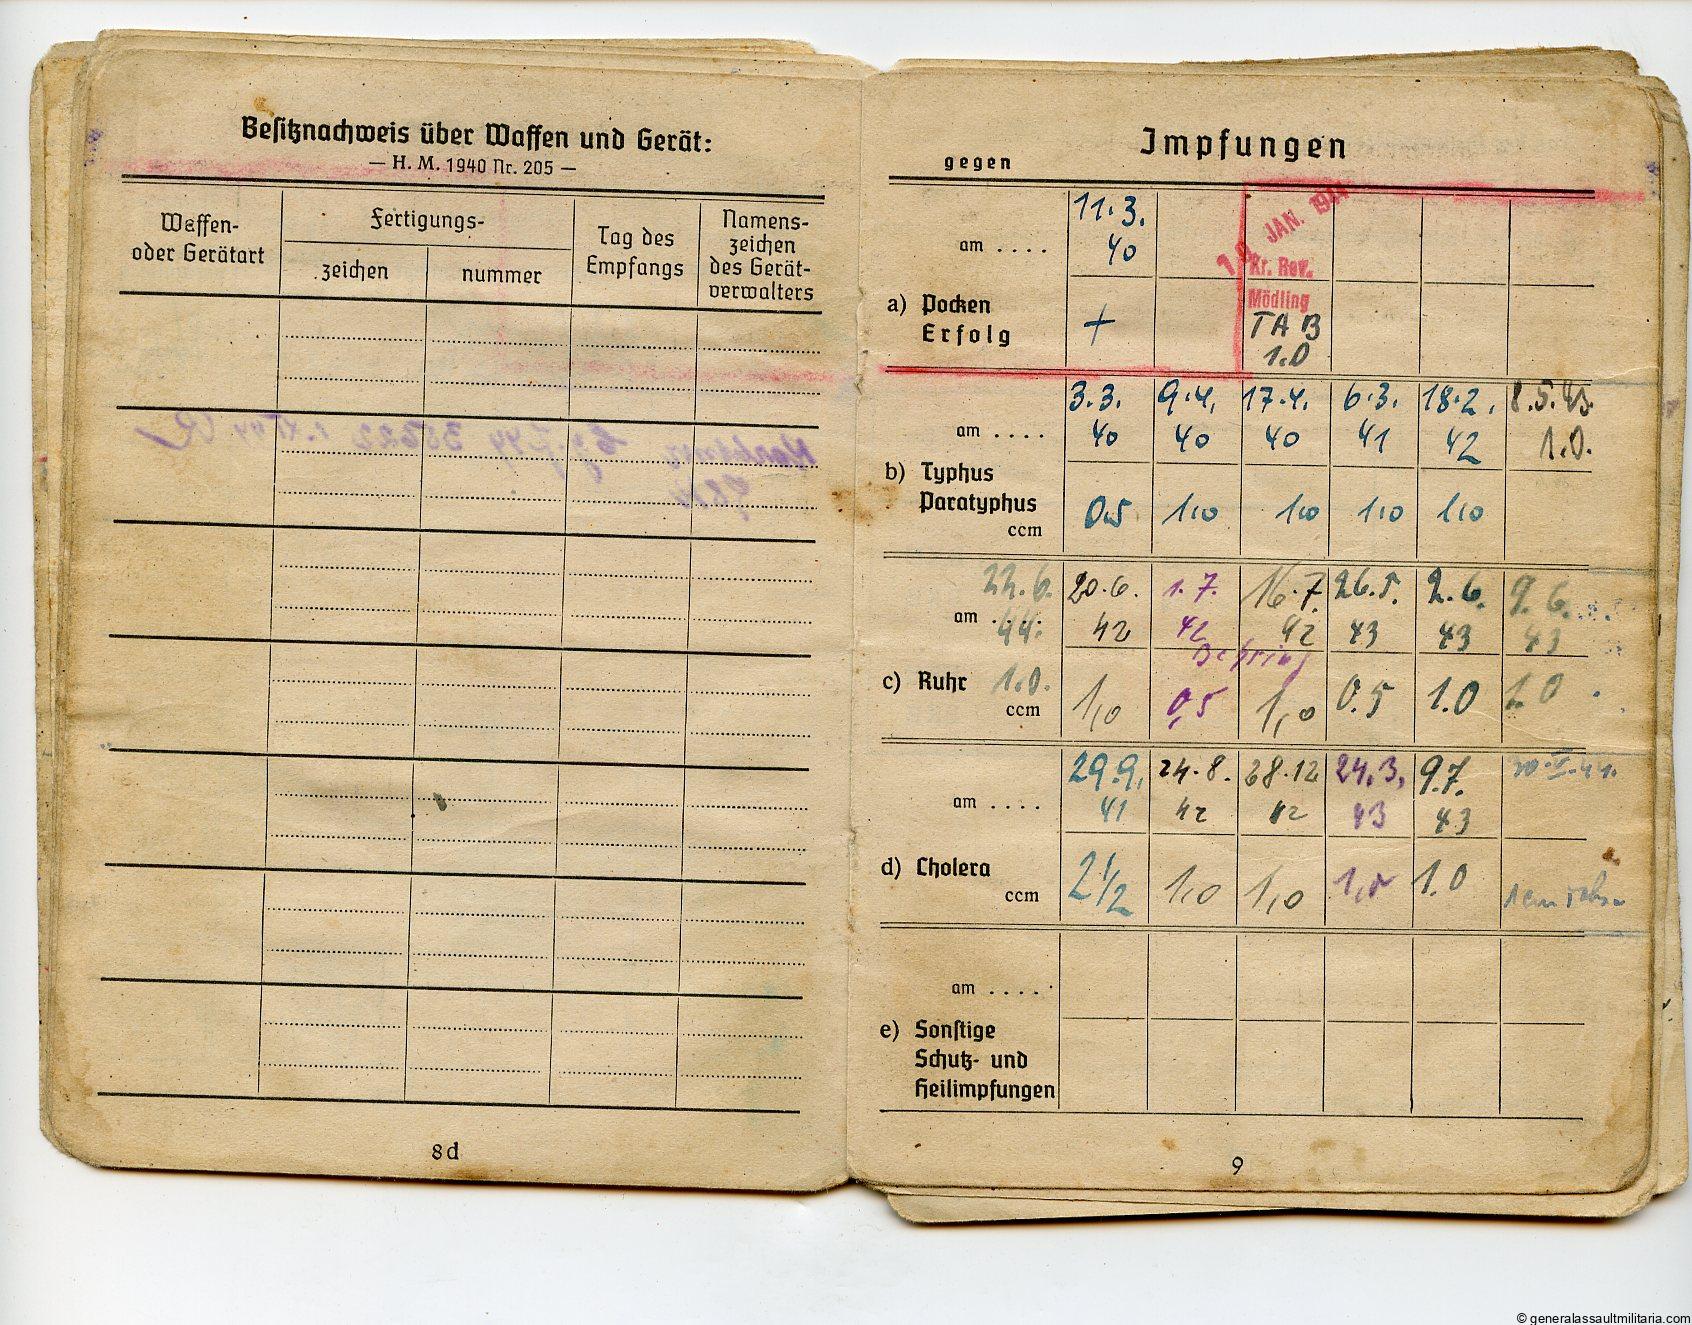 Besitznachweis über Waffen und Gerät:
— H. M. 1940 Nr. 205 —
Waffen-
oder Gerätart
Fertigungs-
zeichen
nummer
Tag des
Empfangs
Namens-
zeichen
des Gerät-
verwalters
8d
Impfungen
gegen
am ....
11.3.
40
JAN. 1944
Kr. Rev.
Mödling
a) Pocken
Erfolg
+
TAB
1.0
am ....
3.3. 9.4. 17.4. 6.3. 18.2. 8.5.43.
40 40 40 41 42 1.0.
b) Typhus
Paratyphus
ccm
0,5 1,0 1,0 1,0 1,0
22.6. 20.6. 1.7. 16.7. 26.5. 2.6. 9.6.
am ....
44. 42 42 42 43 43 43
Behring
c) Ruhr
ccm
1.0. 1,0 0,5 1,0 0.5 1.0 1.0
29.9. 24.8. 28.12 24.3. 9.7.
am ....
41 42 42 43 43
d) Cholera
ccm
2 1/2 1,0 1,0 1,0 1.0
am ....
e) Sonstige
Schutz- und
Heilimpfungen
9
© generalassaultmilitaria.com